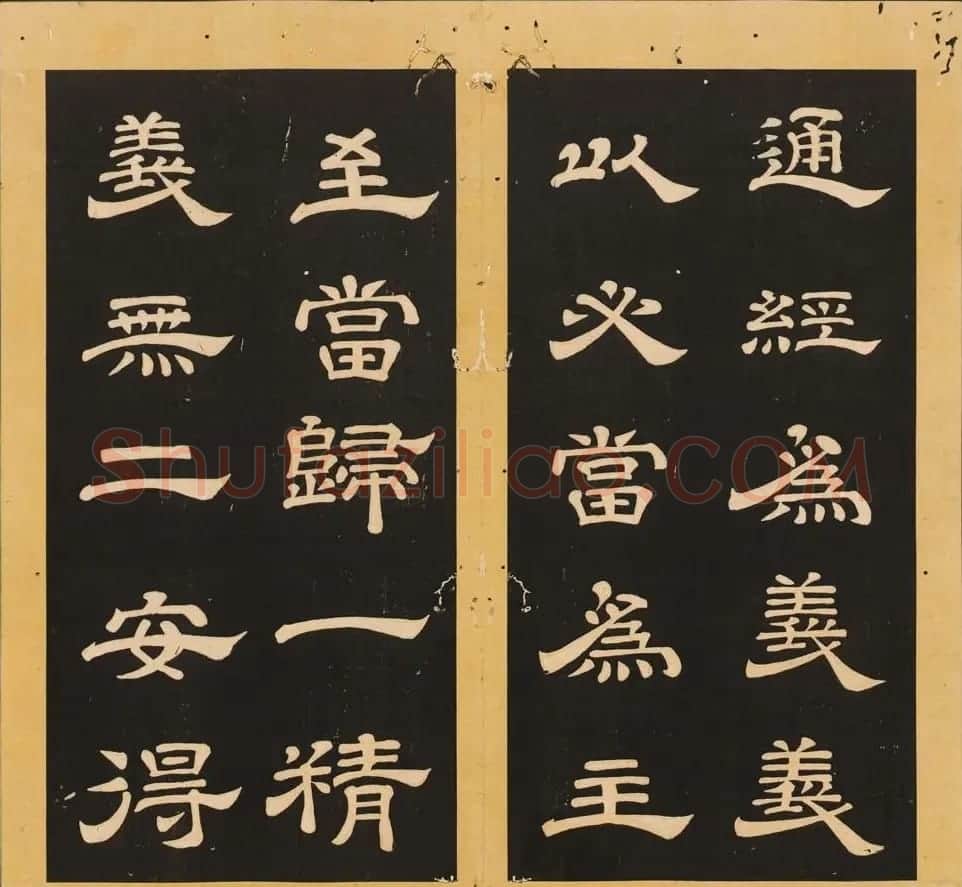 通經為義義
以必當為主
至當歸一精
義無二安得
Shufaziliao.COM